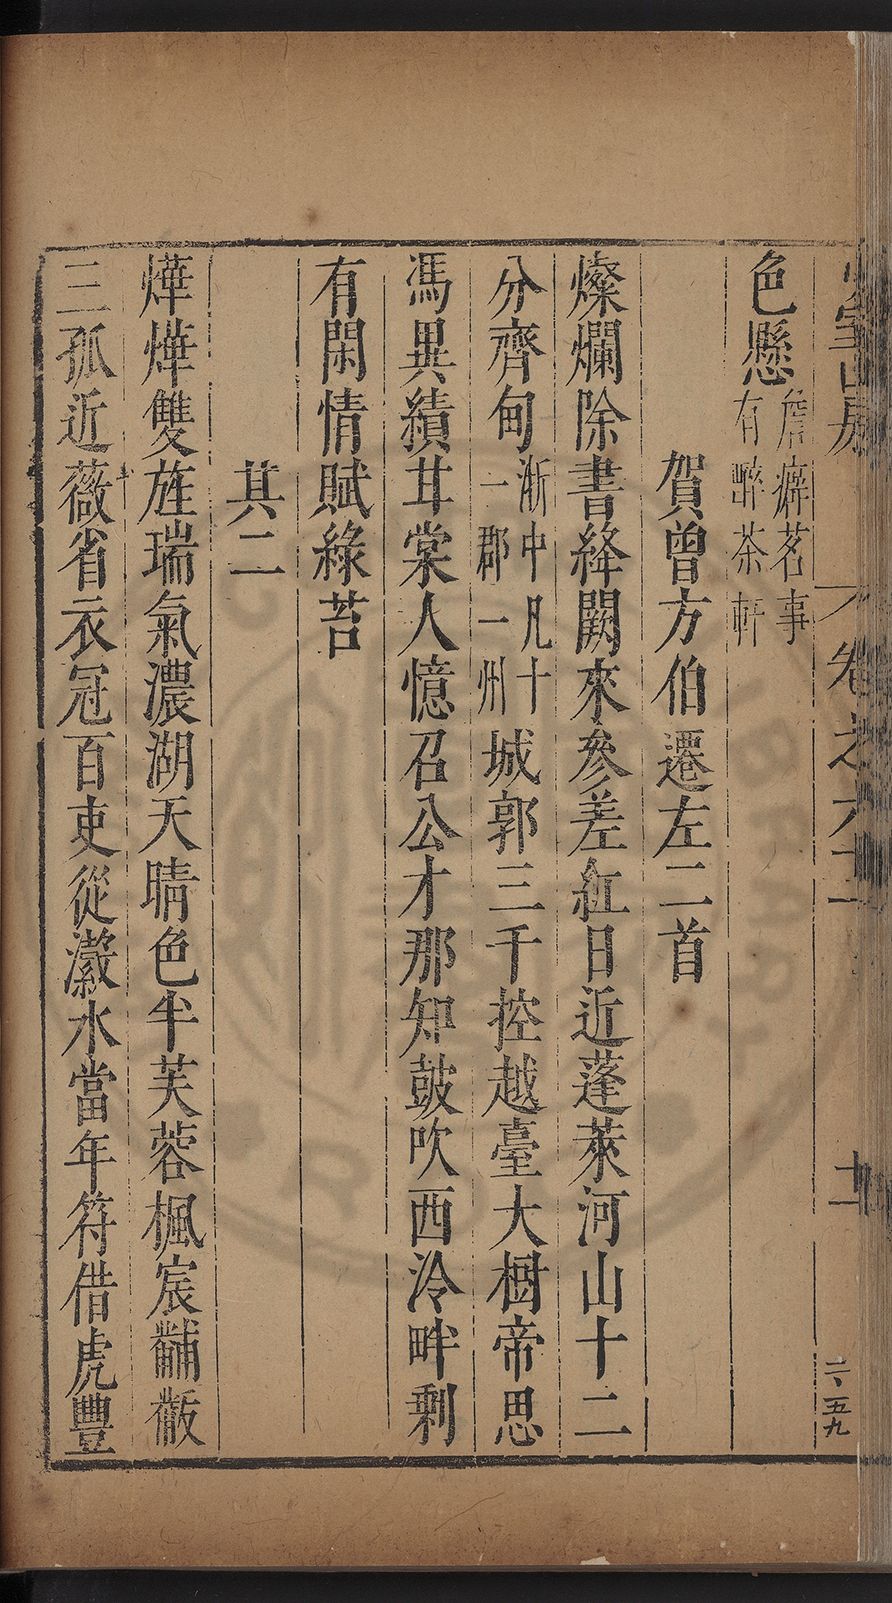 卷之六十二
十一
二·五九
色懸詹癖茗事有醉茶軒
賀曾方伯遷左二首
燦爛除書絳闕來參差紅日近蓬萊河山十二
分齊甸浙中凡十一郡一州城郭三千控越臺大樹帝思
馮異績甘棠人憶召公才那知鼓吹西泠畔剩
有閑情賦綠苔
其二
燁燁雙旌瑞氣濃湖天晴色半芙蓉楓宸黼黻
三孤近薇省衣冠百吏從瀫水當年符借虎豐